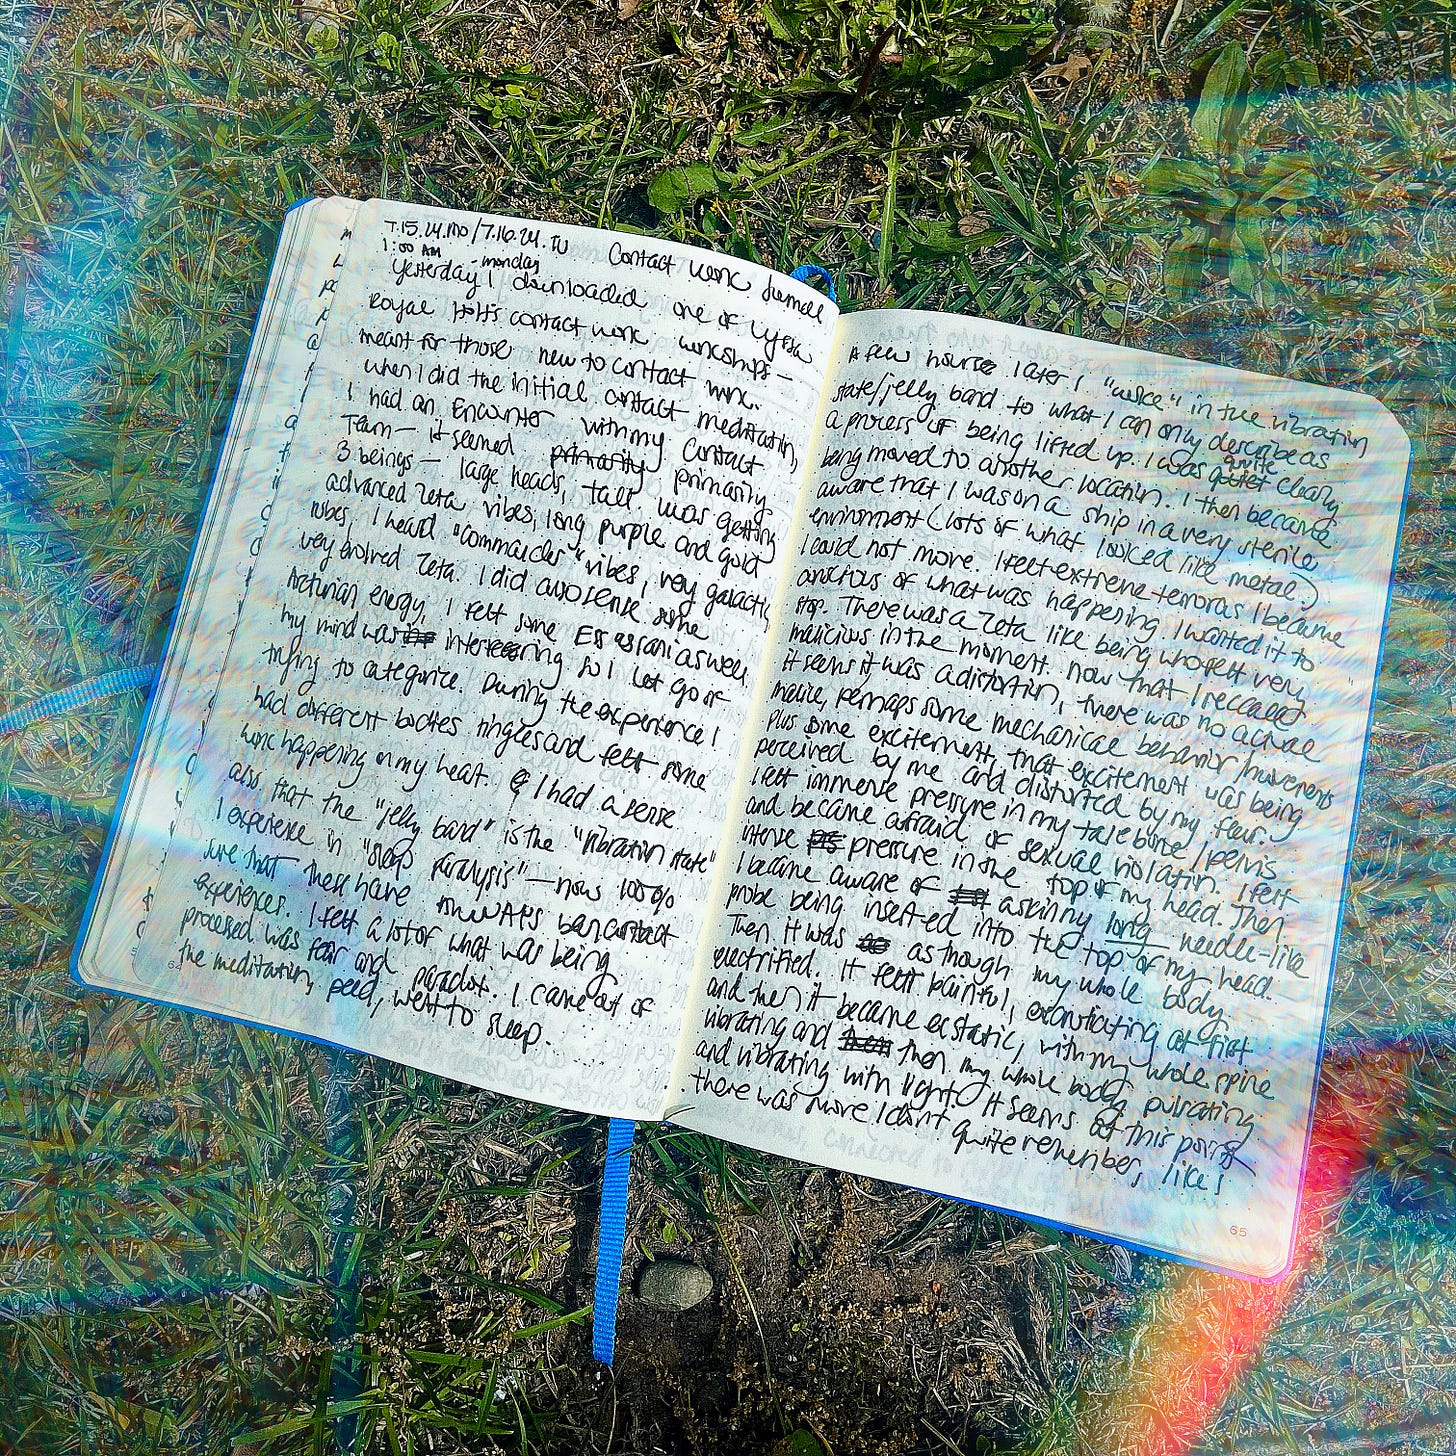 7.15.24.MO/7.16.24.TU Contact work Journal
1:00 AM
Yesterday - monday I downloaded one of Lyssa
Royal Holt's contact work workshops —
meant for those new to contact work.
When I did the initial contact meditation,
I had an Encounter with my Contact
Team — it seemed primarily primarily
3 beings — large heads, tall. Was getting
advanced Zeta vibes, long purple and gold
robes, I heard "Commander" vibes, very galactic,
very evolved Zeta. I did also sense some
Arcturian energy, I felt some Essassani as well
my mind was interfering so I let go of
trying to categorize. During the experience I
had different bodies tingles and felt some
work happening on my heart. & I had a sense
also that the "jelly band" is the "vibration state"
I experience in "sleep paralysis" — now 100%
sure that these have always been contact
experiences. I felt a lot of what was being
processed was fear and paradox. I came out of
the meditation, peed, went to sleep.
64
A few hours later I "woke" in the vibration
state/jelly band to what I can only describe as
a process of being lifted up. I was quite quiet clearly
being moved to another location. I then became
aware that I was on a ship in a very sterile
environment (lots of what looked like metal.)
I could not move. I felt extreme terror as I became
anxious of what was happening. I wanted it to
stop. There was a Zeta like being who felt very
malicious in the moment. now that I recalled
it seems it was a distortion, there was no actual
malice, perhaps some mechanical behavior/movements
plus some excitement, that excitement was being
perceived by me and distorted by my fear.
I felt immense pressure in my tale bone/pelvis
and became afraid of sexual violation. I felt
intense pressure in the top of my head. Then
I became aware of a skinny long needle-like
probe being inserted into the top of my head.
Then it was as though my whole body
electrified. It felt painful, excruciating at first
and then it became ecstatic, with my whole spine
vibrating and then my whole body pulsating
and vibrating with light. It seems at this point
there was more I don't quite remember, like I
65